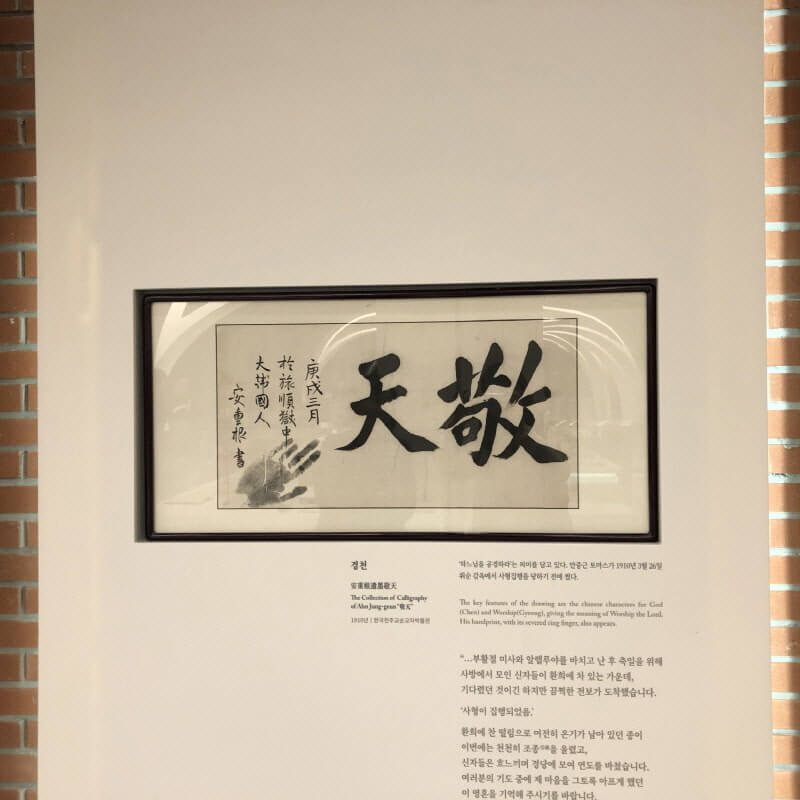 敬天
庚戌三月
於旅順獄中
大韓國人
安重根書
경천
安重根遺墨敬天
The Collection of Calligraphy
of Ahn Jung-geun "敬天"
1910년 | 한국천주교순교자박물관
'하느님을 공경하라'는 의미를 담고 있다. 안중근 토마스가 1910년 3월 26일
뤼순 감옥에서 사형집행을 당하기 전에 썼다.
The key features of the drawing are the chinese characters for God
(Cheon) and Worship(Gyeong), giving the meaning of Worship the Lord.
His handprint, with its severed ring finger, also appears.
"…부활절 미사와 알렐루야를 바치고 난 후 축일을 위해
사방에서 모인 신자들이 환희에 차 있는 가운데,
기다렸던 것이긴 하지만 끔찍한 전보가 도착했습니다.
'사형이 집행되었음.'
환희에 찬 떨림으로 여전히 온기가 남아 있던 종이
이번에는 천천히 조종을 울렸고,
신자들은 흐느끼며 경당에 모여 연도를 바쳤습니다.
여러분의 기도 중에 제 마음을 그토록 아프게 했던
이 영혼을 기억해 주시기를 바랍니다.